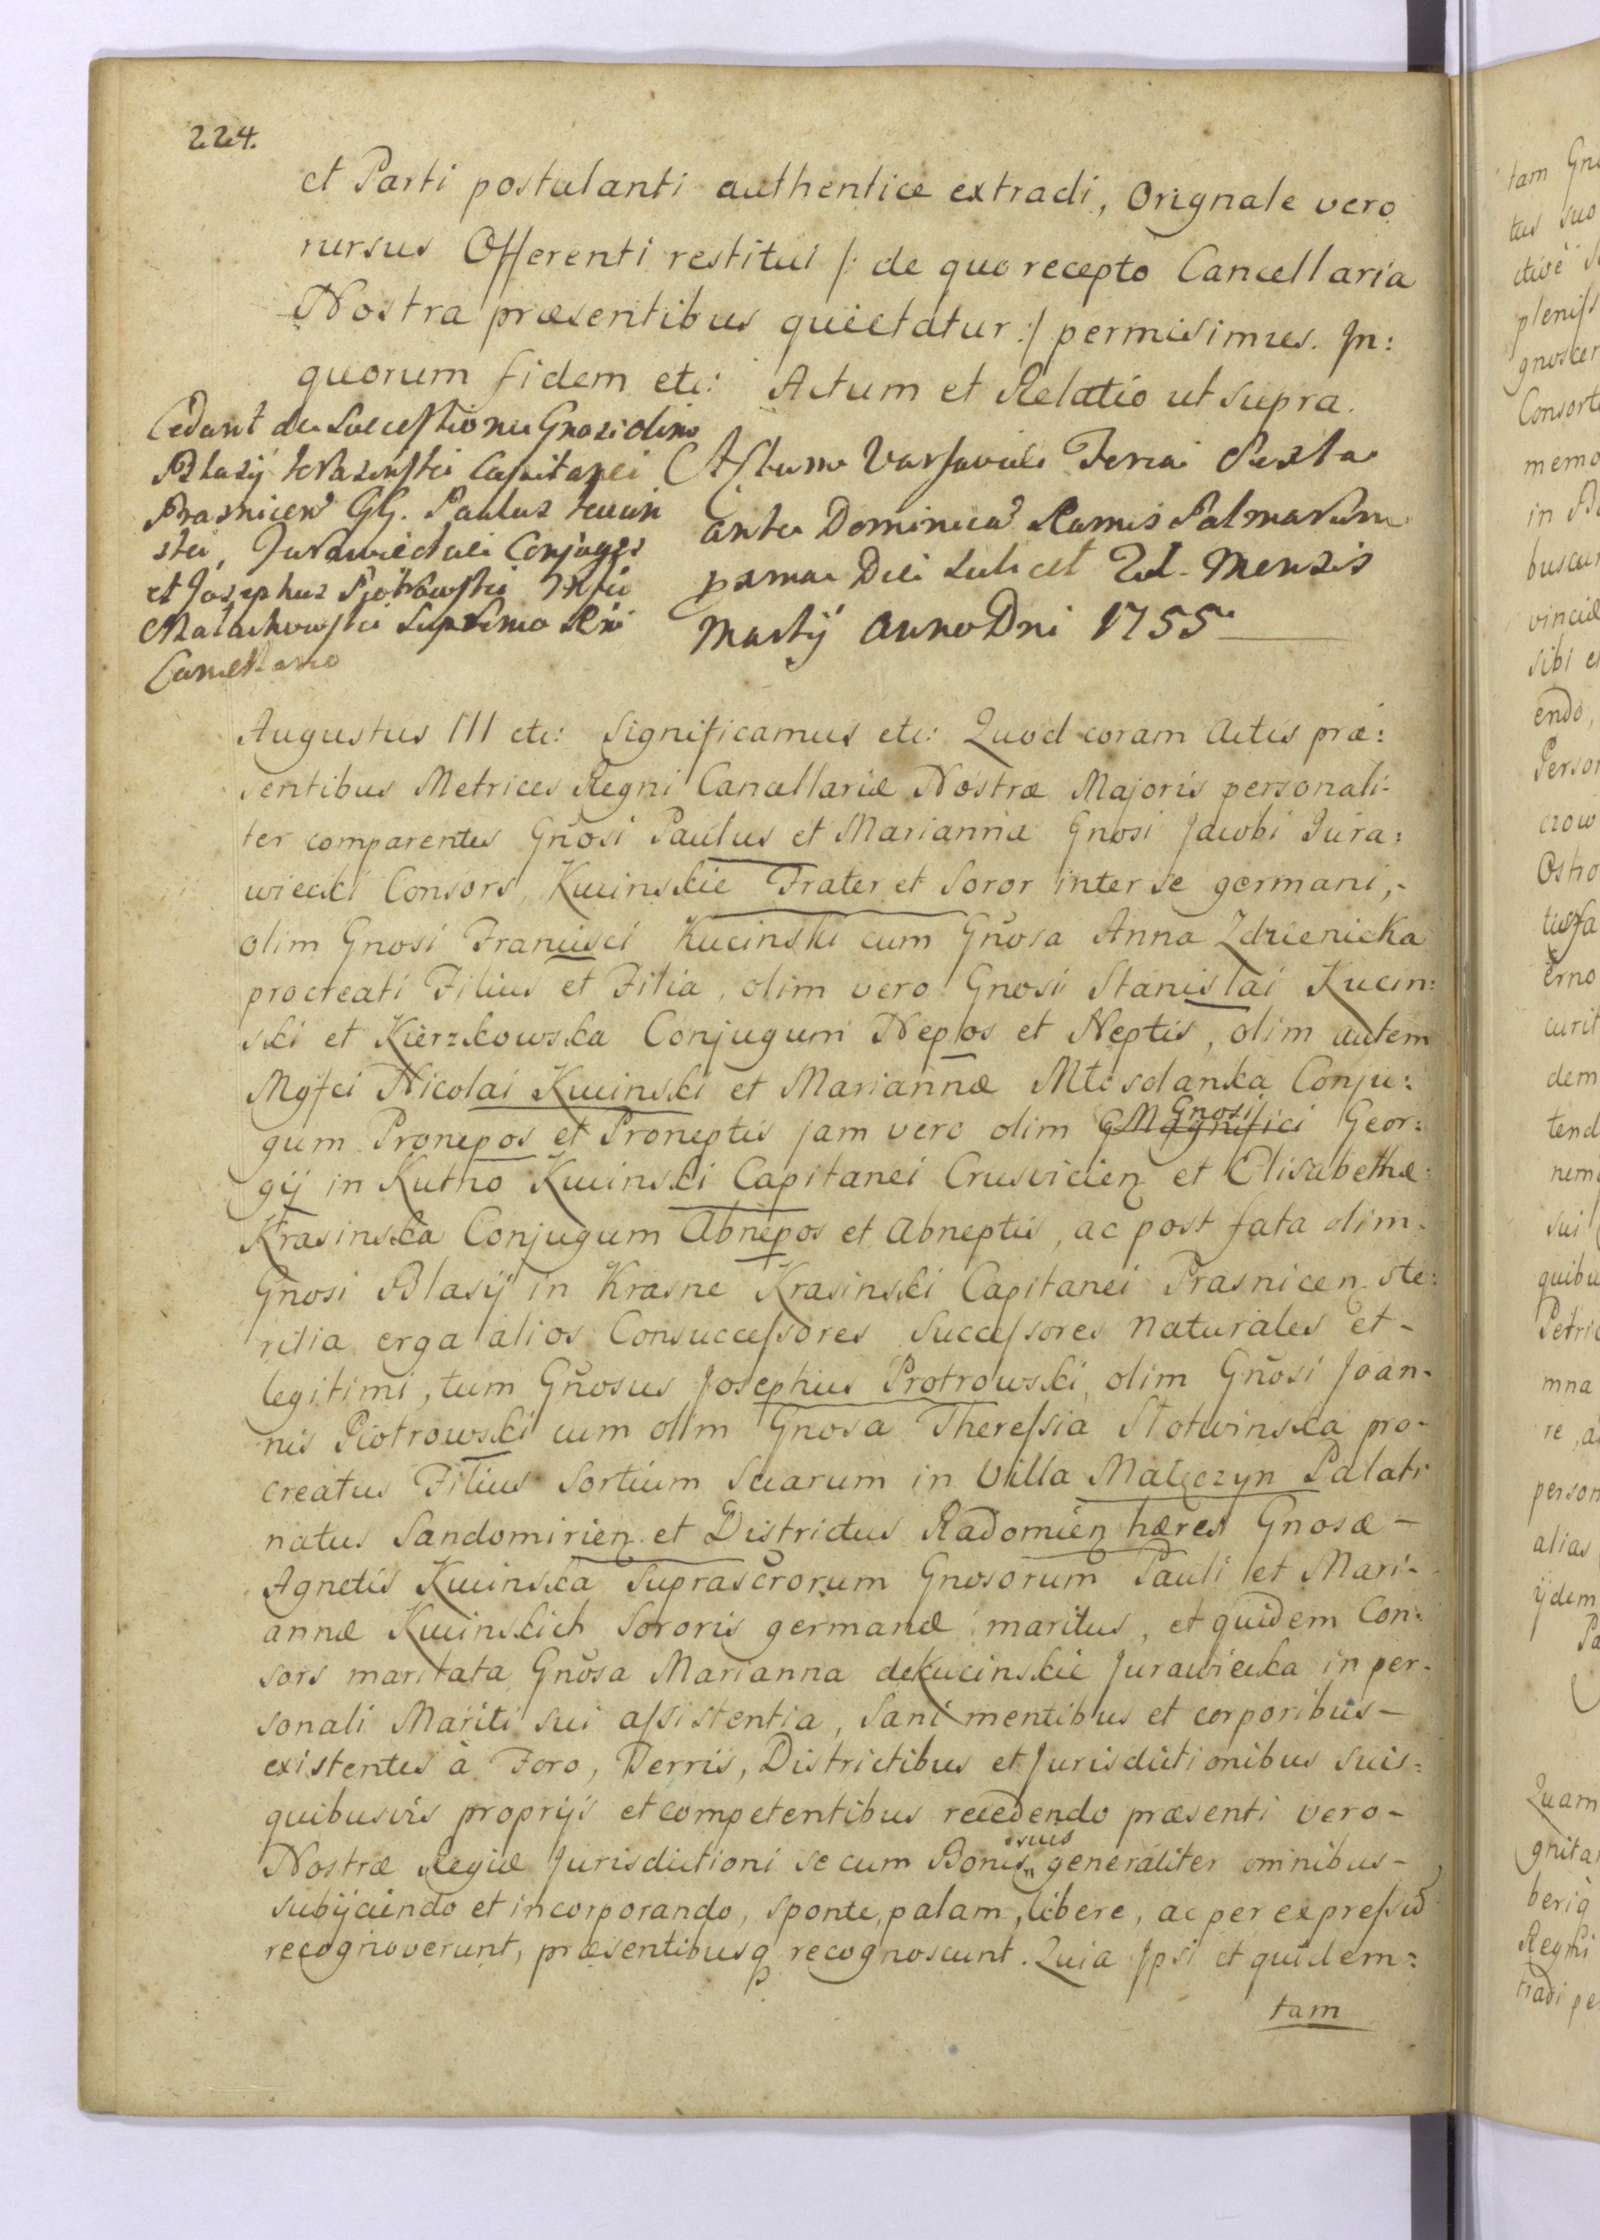 224.
et Parti postulanti authentice extradi, Orignale vero
rursus Offerenti restitui /: de quo recepto Cancellaria
Nostra præsentibus quietatur :/ permisimus. Jn:
quorum fidem etc: Actum et Relatio ut supra.
Cedunt de Successione Gnosi olim
Blasij Krasinski Capitanei
Prasnicen GG. Paulus Kucin
ski, Jurawieckie Conjuges
et Josephus Piotrowski Mfico
Małachowski Supremo Rni
Cancellario
Actum Varsaviæ Feria Sexta
ante Dominica Ramis Palmarum
prma Die scilicet 21. Mensis
Martij Anno Dni 1755
Augustus III etc: Significamus etc: Quod coram Actis præ:
sentibus Metrices Regni Cancellariæ Nostræ Majoris personali-
ter comparentes Gnosi Paulus et Marianna Gnosi Jacobi Jura:
wiecki Consors, Kucinskie Frater et Soror inter se germani,-
olim Gnosi Francisci Kucinski cum Gnosa Anna Zdzienicka
procreati Filius et Filia, olim vero Gnosi Stanislai Kucin:
ski et Kierzkowska Conjugum Nepos et Neptis, olim autem
Mgfci Nicolai Kucinski et Mariannæ Młosdanka Conju:
gum Pronepos et Proneptis jam vero olim GMagnifici Gnosi Geor:
gij in Kutno Kucinski Capitanei Crusvicien et Elisabethæ
Krasinska Conjugum Abnepos et Abneptis, ac post fata olim-
Gnosi Blasij in Krasne Krasinski Capitanei Prasnicen ste:
rilia erga alios Consuccessores Successores naturales et-
legitimi, tum Gnosus Josephus Protrowski, olim Gnosi Joan-
nis Piotrowski cum olim Gnosa Theressia Słotwinska pro-
creatus Filius Sortium Suarum in Villa Malęczyn Palati
natus Sandomirien et Districtus Radomien hæres Gnosæ-
Agnetis Kucinska Suprascrorum Gnosorum Pauli et Mari-
annæ Kucinskich Sororis germanæ maritus, et quidem Con:
sors maritata Gnosa Marianna de Kucinskie Jurawiecka in per-
sonali Mariti sui assistentia, Sani mentibus et corporibus-
existentes à Foro, Terris, Districtibus et Jurisdictionibus suis-
quibusvis proprijs et competentibus recedendo præsenti vero-
Nostræ Regiæ Jurisdictioni se cum Bonis suis generaliter omnibus-
subijciendo et incorporando, sponte, palam, libere, ac per expressū
recognoverunt, præsentibusq recognoscunt. Quia Jpsi et quidem:
tam